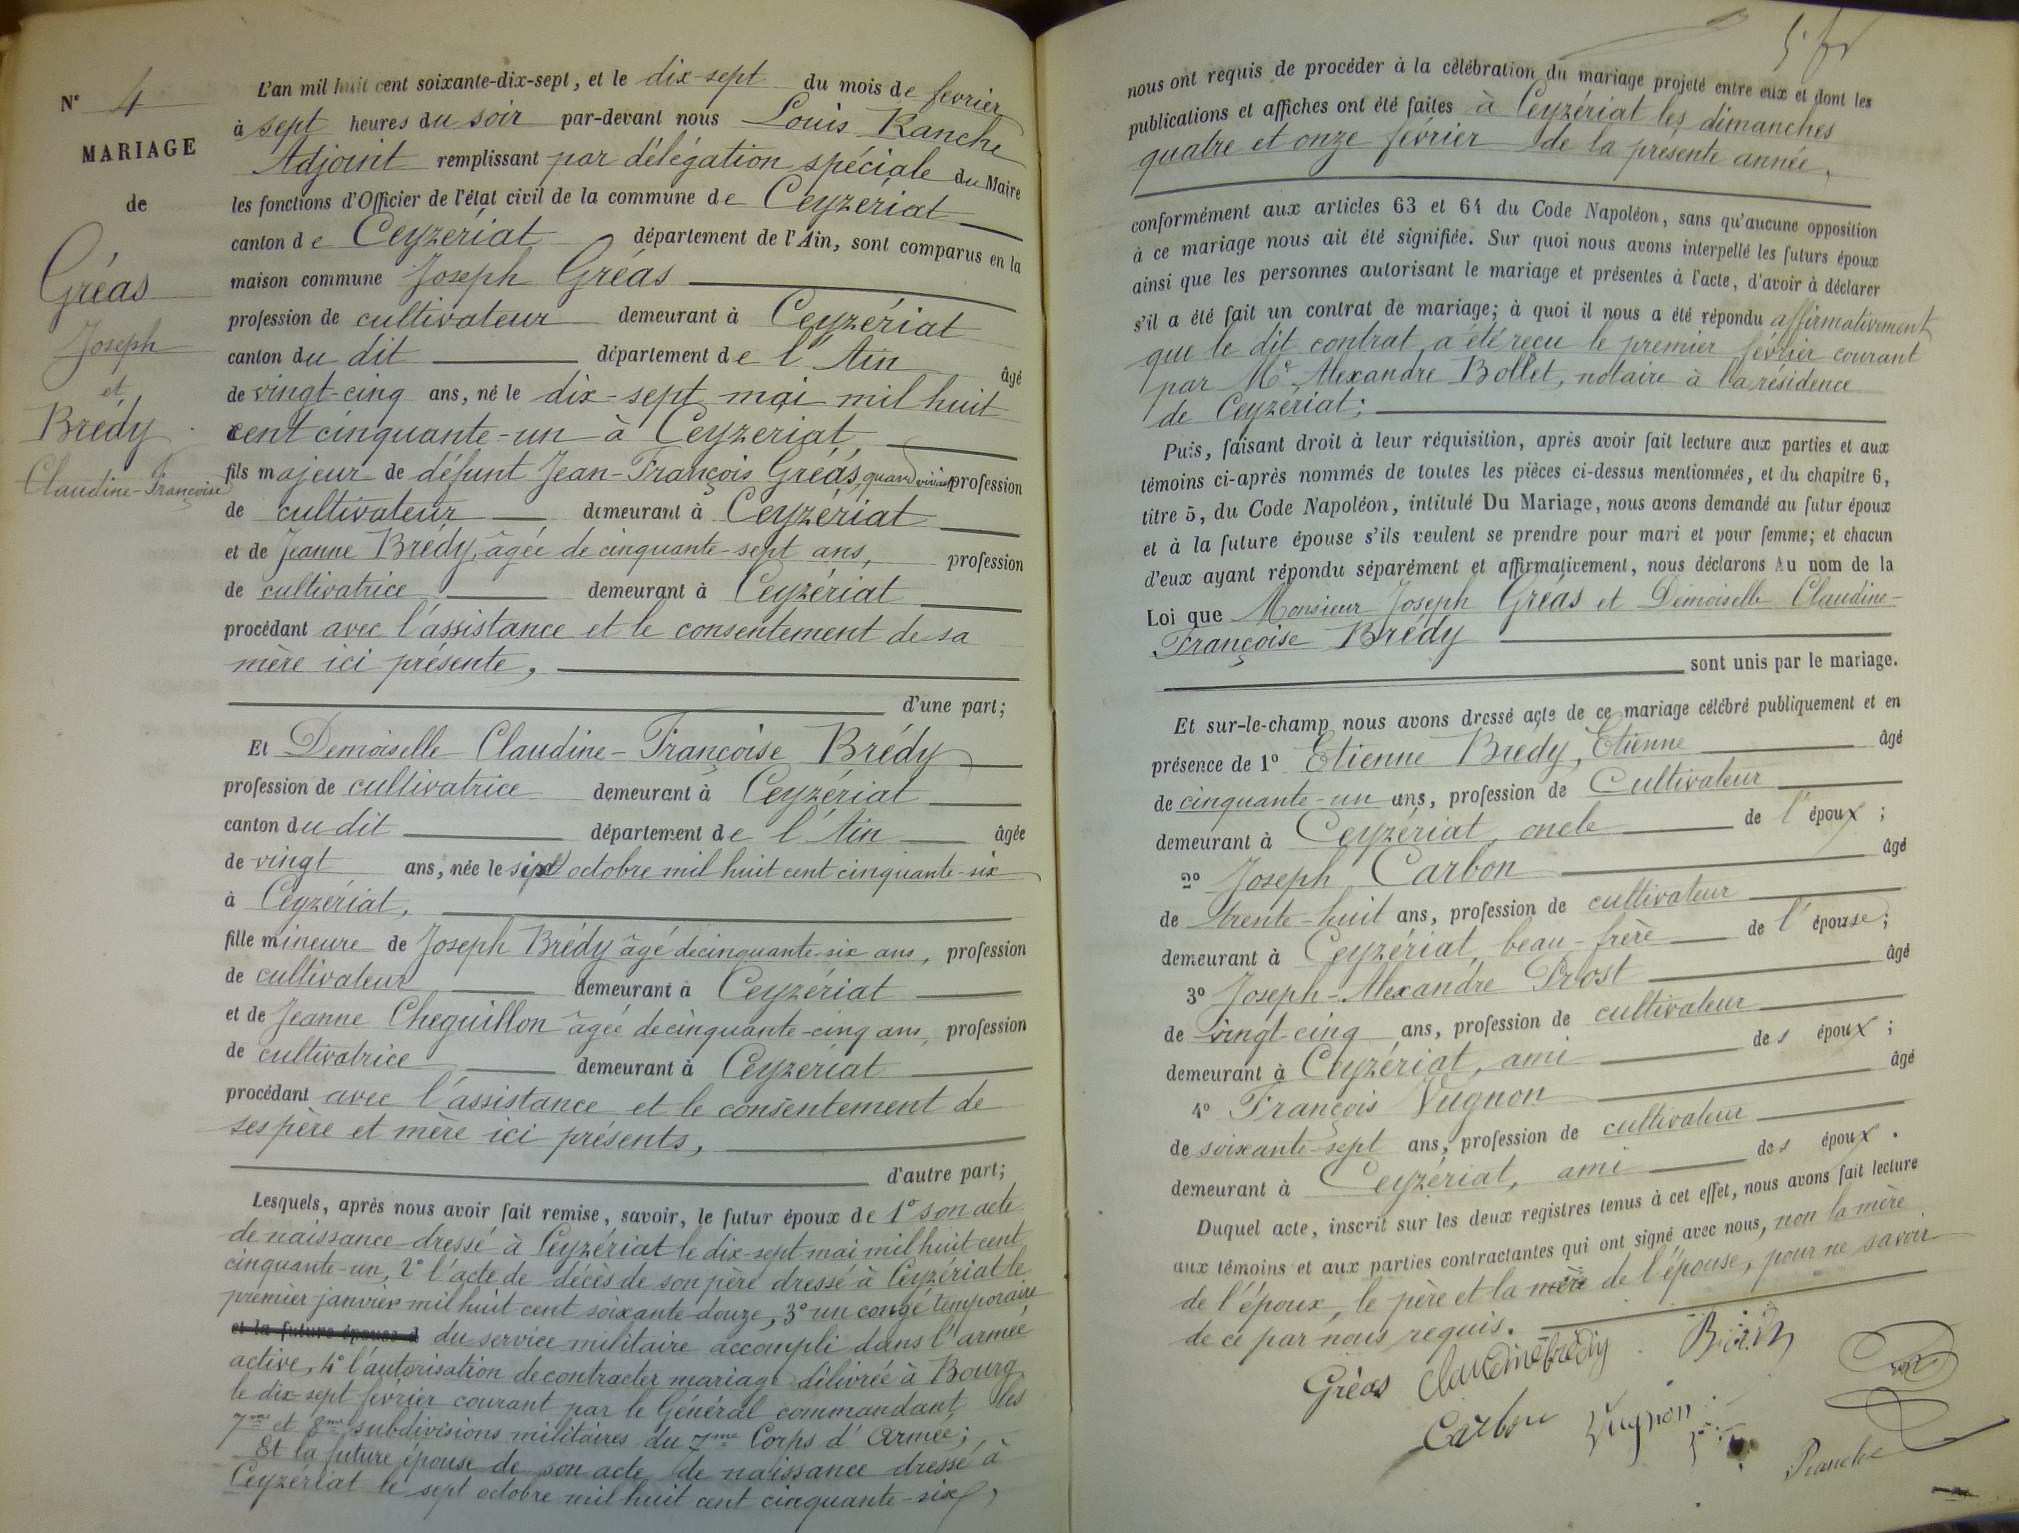 N° 4
MARIAGE
de
Gréas
Joseph
et
Brédy
Claudine-Françoise
L'an mil huit cent soixante-dix-sept, et le dix-sept du mois de fevrier
à sept heures du soir par-devant nous Louis Ranche
Adjoint remplissant par délégation spéciale du Maire
les fonctions d'Officier de l'état civil de la commune de Ceyzériat
canton de Ceyzériat département de l'Ain, sont comparus en la
maison commune Joseph Gréas
profession de cultivateur demeurant à Ceyzériat
canton du dit département de l'Ain âgé
de vingt-cinq ans, né le dix-sept mai mil huit
cent cinquante-un à Ceyzeriat,
fils majeur de défunt Jean-François Gréas, quand vivait profession
de cultivateur demeurant à Ceyzériat
et de Jeanne Brédy, âgée de cinquante-sept ans, profession
de cultivatrice demeurant à Ceyzériat
procédant avec l'assistance et le consentement de sa
mère ici présente,
d'une part;
Et Demoiselle Claudine-Françoise Brédy
profession de cultivatrice demeurant à Ceyzériat
canton du dit département de l'Ain âgée
de vingt ans, née le octobre mil huit cent cinquante-six
à Ceyzériat,
fille mineure de Joseph Brédy âgé de cinquante-six ans, profession
de cultivateur demeurant à Ceyzériat
et de Jeanne Cheguillon âgée de cinquante-cinq ans, profession
de cultivatrice demeurant à Ceyzériat
procédant avec l'assistance et le consentement de
ses père et mère ici présents,
d'autre part;
Lesquels, après nous avoir fait remise, savoir, le futur époux de 1° son acte
de naissance dressé à Ceyzériat le dix-sept mai mil huit cent
cinquante-un, 2° l'acte de décès de son père dressé à Ceyzériat le
premier janvier mil huit cent soixante douze, 3° un congé temporaire
et la future épouse d du service militaire accompli dans l'armée
active, 4° l'autorisation de contracter mariage délivrée à Bourg
le dix-sept février courant par le Général commandant les
7me et 8me subdivisions militaires du 7me Corps d'Armée;
Et la future épouse de son acte de naissance dressé à
Ceyzériat le sept octobre mil huit cent cinquante-six,
nous ont requis de procéder à la célébration du mariage projeté entre eux et dont les
publications et affiches ont été faites à Ceyzériat les dimanches
quatre et onze février de la presente année,
conformément aux articles 63 et 64 du Code Napoléon, sans qu'aucune opposition
à ce mariage nous ait été signifiée. Sur quoi nous avons interpellé les futurs époux
ainsi que les personnes autorisant le mariage et présentes à l'acte, d'avoir à déclarer
s'il a été fait un contrat de mariage; à quoi il nous a été répondu affirmativement
que le dit contrat a été reçu le premier février courant
par Me Alexandre Bollet, notaire à la résidence
de Ceyzériat;
Puis, faisant droit à leur réquisition, après avoir fait lecture aux parties et aux
témoins ci-après nommés de toutes les pièces ci-dessus mentionnées, et du chapitre 6,
titre 5, du Code Napoléon, intitulé Du Mariage, nous avons demandé au futur époux
et à la future épouse s'ils veulent se prendre pour mari et pour femme; et chacun
d'eux ayant répondu séparément et affirmativement, nous déclarons Au nom de la
Loi que Monsieur Joseph Gréas et Demoiselle Claudine-
Françoise Brédy
sont unis par le mariage.
Et sur-le-champ nous avons dressé acte de ce mariage célébré publiquement et en
présence de 1° Etienne Bredy, Etienne âgé
de cinquante-un ans, profession de Cultivateur
demeurant à Ceyzériat, oncle de l'époux;
2° Joseph Carbon âgé
de trente-huit ans, profession de cultivateur
demeurant à Ceyzériat, beau-frère de l'épouse;
3° Joseph-Alexandre Prost âgé
de vingt-cinq ans, profession de cultivateur
demeurant à Ceyzériat, ami des époux;
4° François Vugnon âgé
de soixante-sept ans, profession de cultivateur
demeurant à Ceyzériat, ami des époux.
Duquel acte, inscrit sur les deux registres tenus à cet effet, nous avons fait lecture
aux témoins et aux parties contractantes qui ont signé avec nous, non la mère
de l'époux, le père et la mère de l'épouse, pour ne savoir
de ce par nous requis.
Gréas Claudine brédy
Carbon Vugnon
Ranche